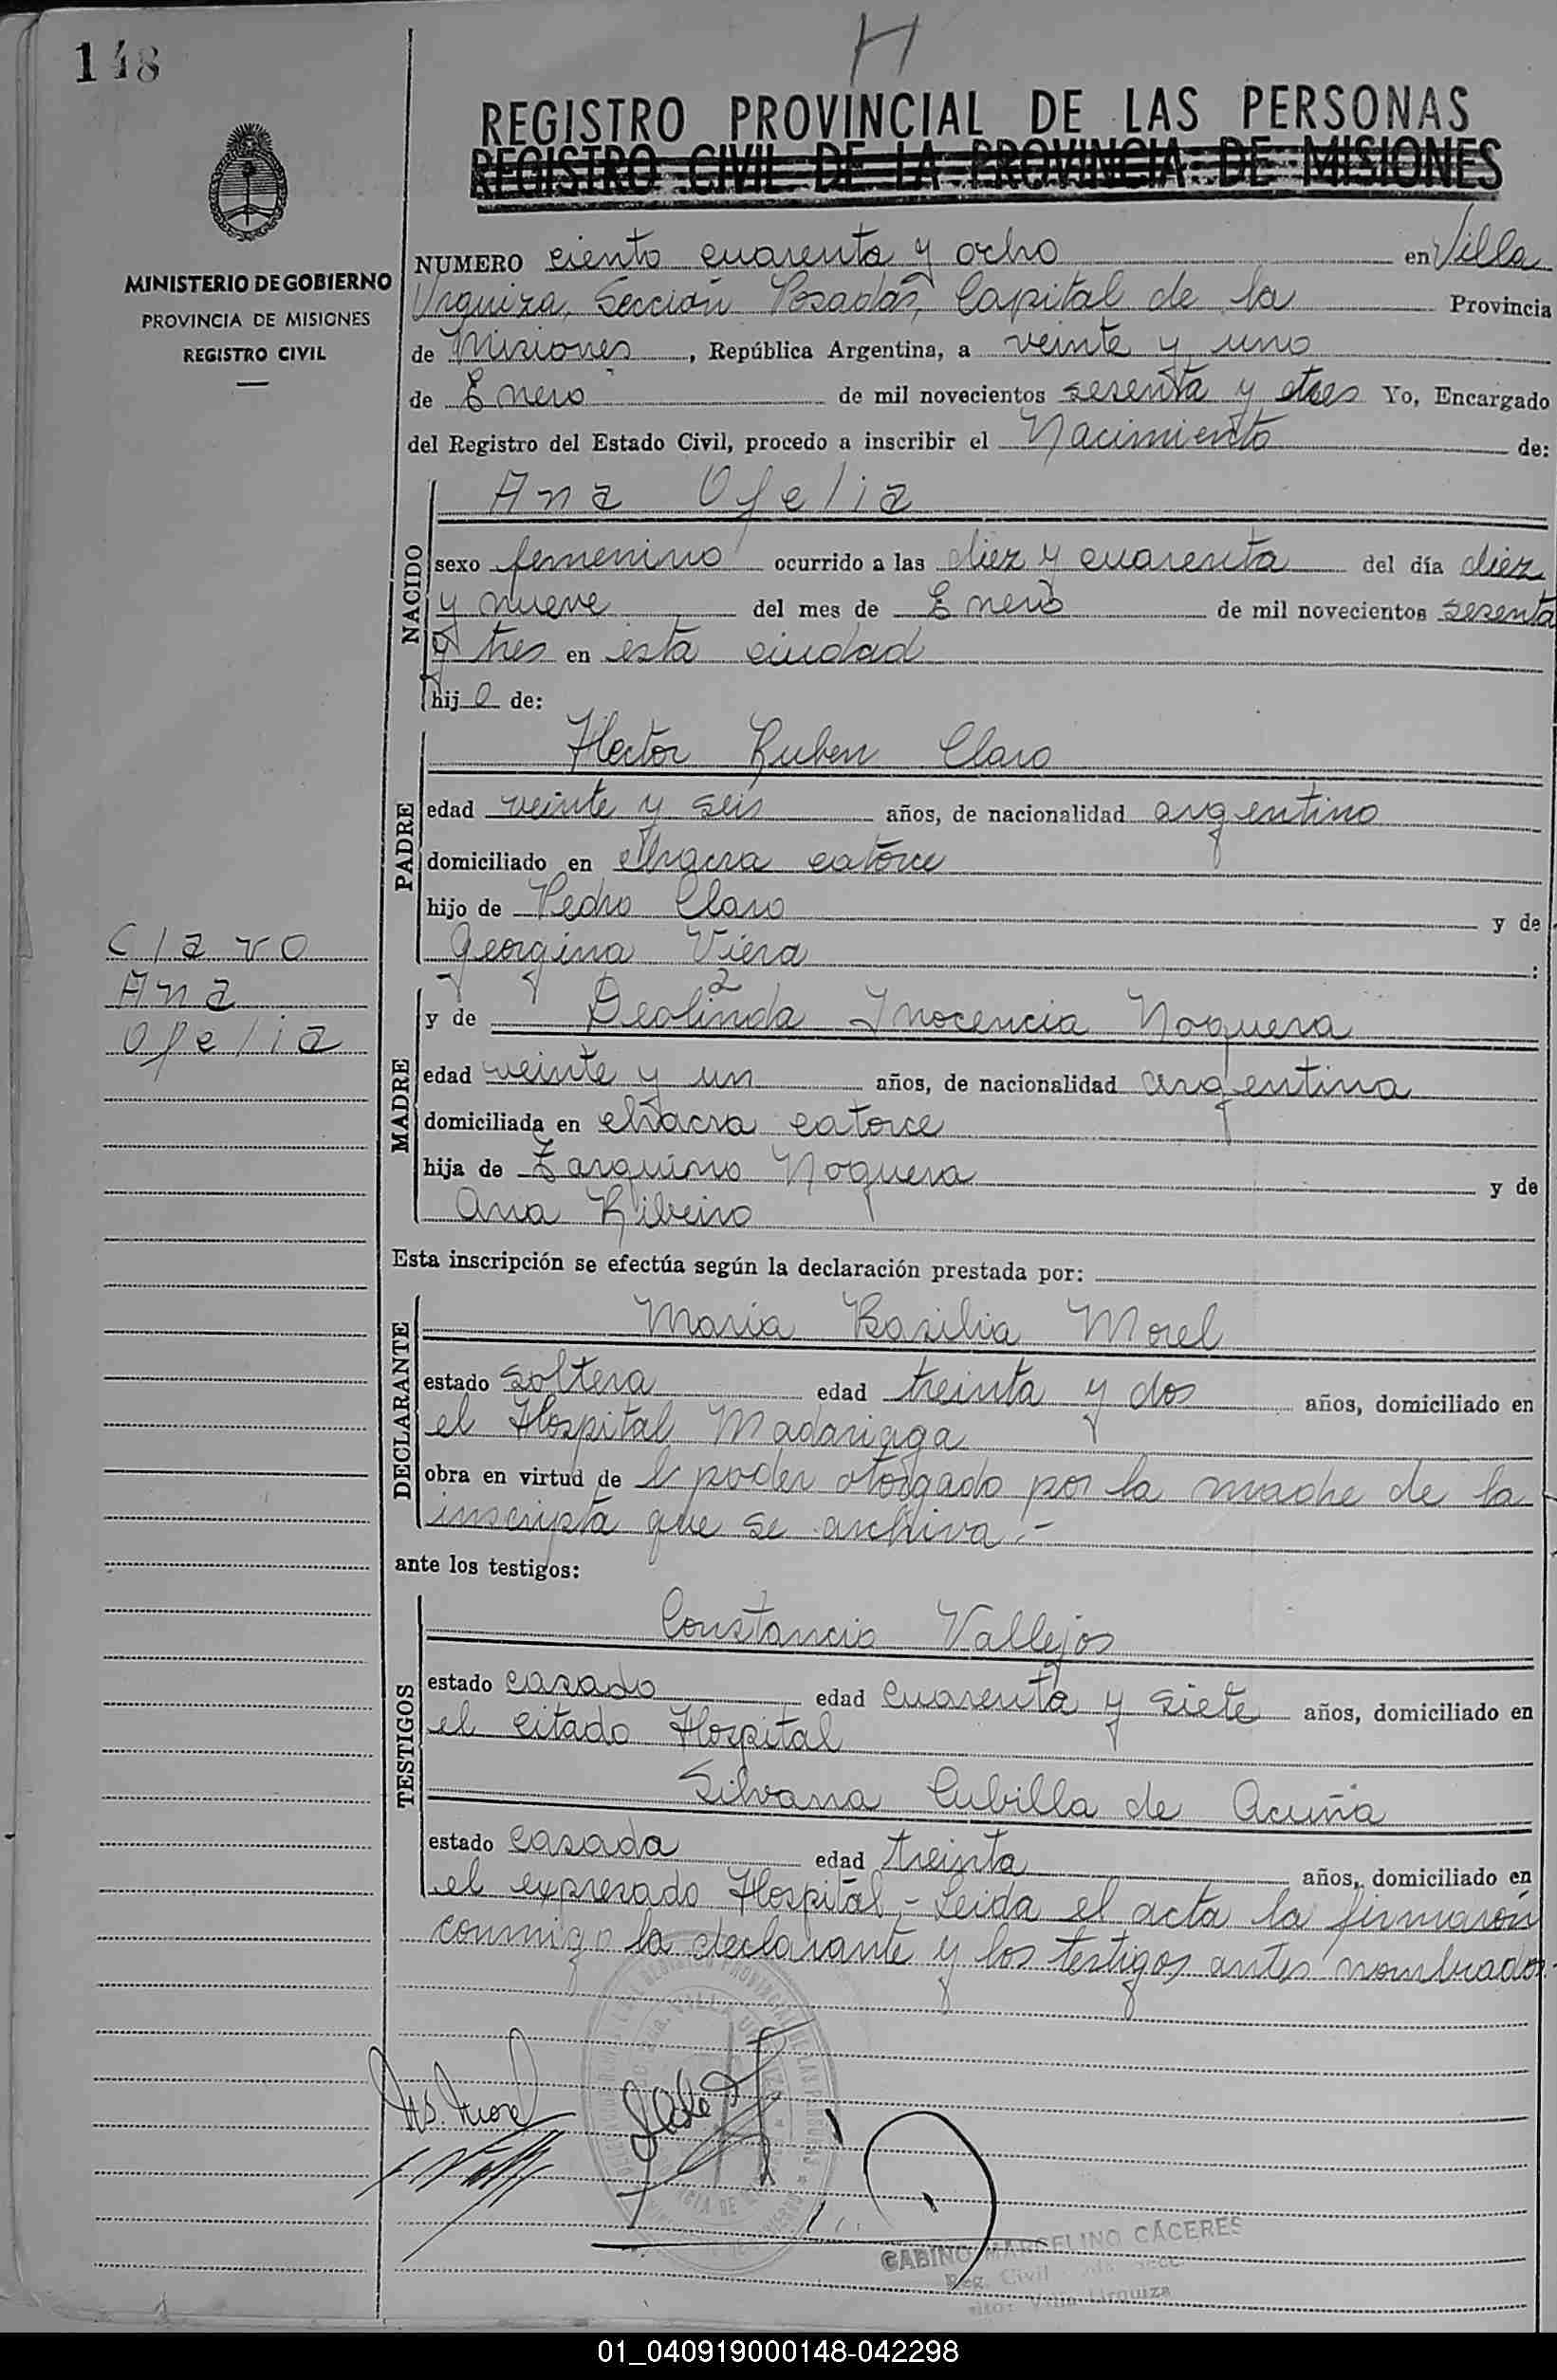 148
H
REGISTRO PROVINCIAL DE LAS PERSONAS
REGISTRO CIVIL DE LA PROVINCIA DE MISIONES
MINISTERIO DE GOBIERNO
PROVINCIA DE MISIONES
REGISTRO CIVIL
NUMERO ciento cuarenta y ocho en Villa
Urquiza, Sección Posadas, Capital de la Provincia
de Misiones, República Argentina, a veinte y uno
de Enero de mil novecientos sesenta y tres Yo, Encargado
del Registro del Estado Civil, procedo a inscribir el Nacimiento de:
NACIDO
Ana Ofelia
sexo femenino ocurrido a las diez y cuarenta del día diez
y nueve del mes de Enero de mil novecientos sesenta
y tres en esta ciudad
hij a de:
PADRE
Hector Ruben Claro
edad veinte y seis años, de nacionalidad argentino
domiciliado en chacra catorce
hijo de Pedro Claro y de
Georgina Viera :
Claro
Ana
Ofelia
MADRE
y de Deolinda Inocencia Noguera
edad veinte y un años, de nacionalidad argentina
domiciliada en chacra catorce
hija de Noguera y de
Ana Ribeiro
Esta inscripción se efectúa según la declaración prestada por:
DECLARANTE
Maria Basilia Morel
estado soltera edad treinta y dos años, domiciliado en
el Hospital Madariaga
obra en virtud de poder otorgado por la madre de la
inscripta que se archiva.-
ante los testigos:
TESTIGOS
Constancio Vallejos
estado casado edad cuarenta y siete años, domiciliado en
el citado Hospital
Silvana Cubilla de Acuña
estado casada edad treinta años, domiciliado en
el expresado Hospital - Leida el acta la firmaron
conmigo la declarante y los testigos antes nombrados.
GABINO MARCELINO CÁCERES
Reg. Civil
Villa Urquiza
01_040919000148-042298